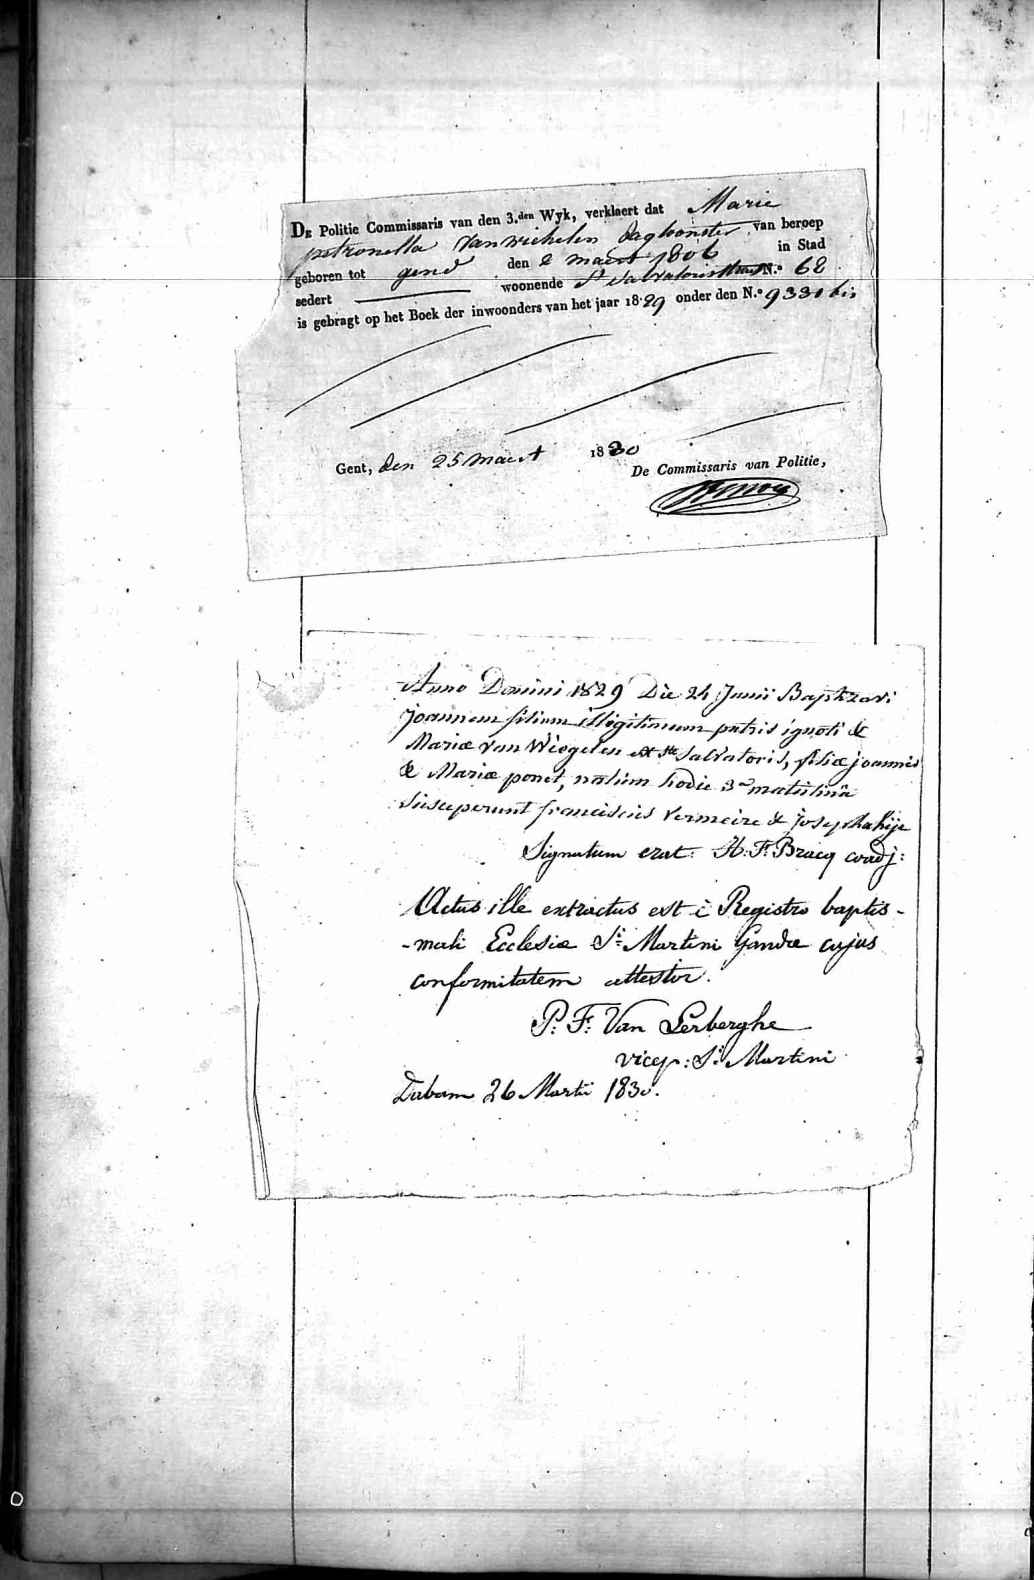 De Politie Commissaris van den 3.den Wyk, verklaert dat Marie
petronella Van wichelen dagloonster van beroep
geboren tot gend den 2 maert 1806 in Stad
sedert woonende St Salvatorstraet N.° 62
is gebragt op het Boek der inwoonders van het jaar 1829 onder den N.° 9330 bis
Gent, den 25 maert 1830
De Commissaris van Politie,
Anno Domini 1829 Die 24 Junii Baptizavi
Joannem filium illegitimum patris ignoti &
Mariæ Van Wiegelen ex Ste Salvatoris, filiæ joannis
& Mariæ ponet, natum hodie 3a matutinâ
Susceperunt franciscus Vermeire & Josepha
Signatum erat: H: F: Bracq coadj:
Actus ille extractus est è Registro baptis-
-mali Ecclesiæ Sti Martini Gandæ cujus
conformitatem attestor.
P: F: Van Lerberghe
vicep: Sti Martini
Dabam 26 Martii 1830.